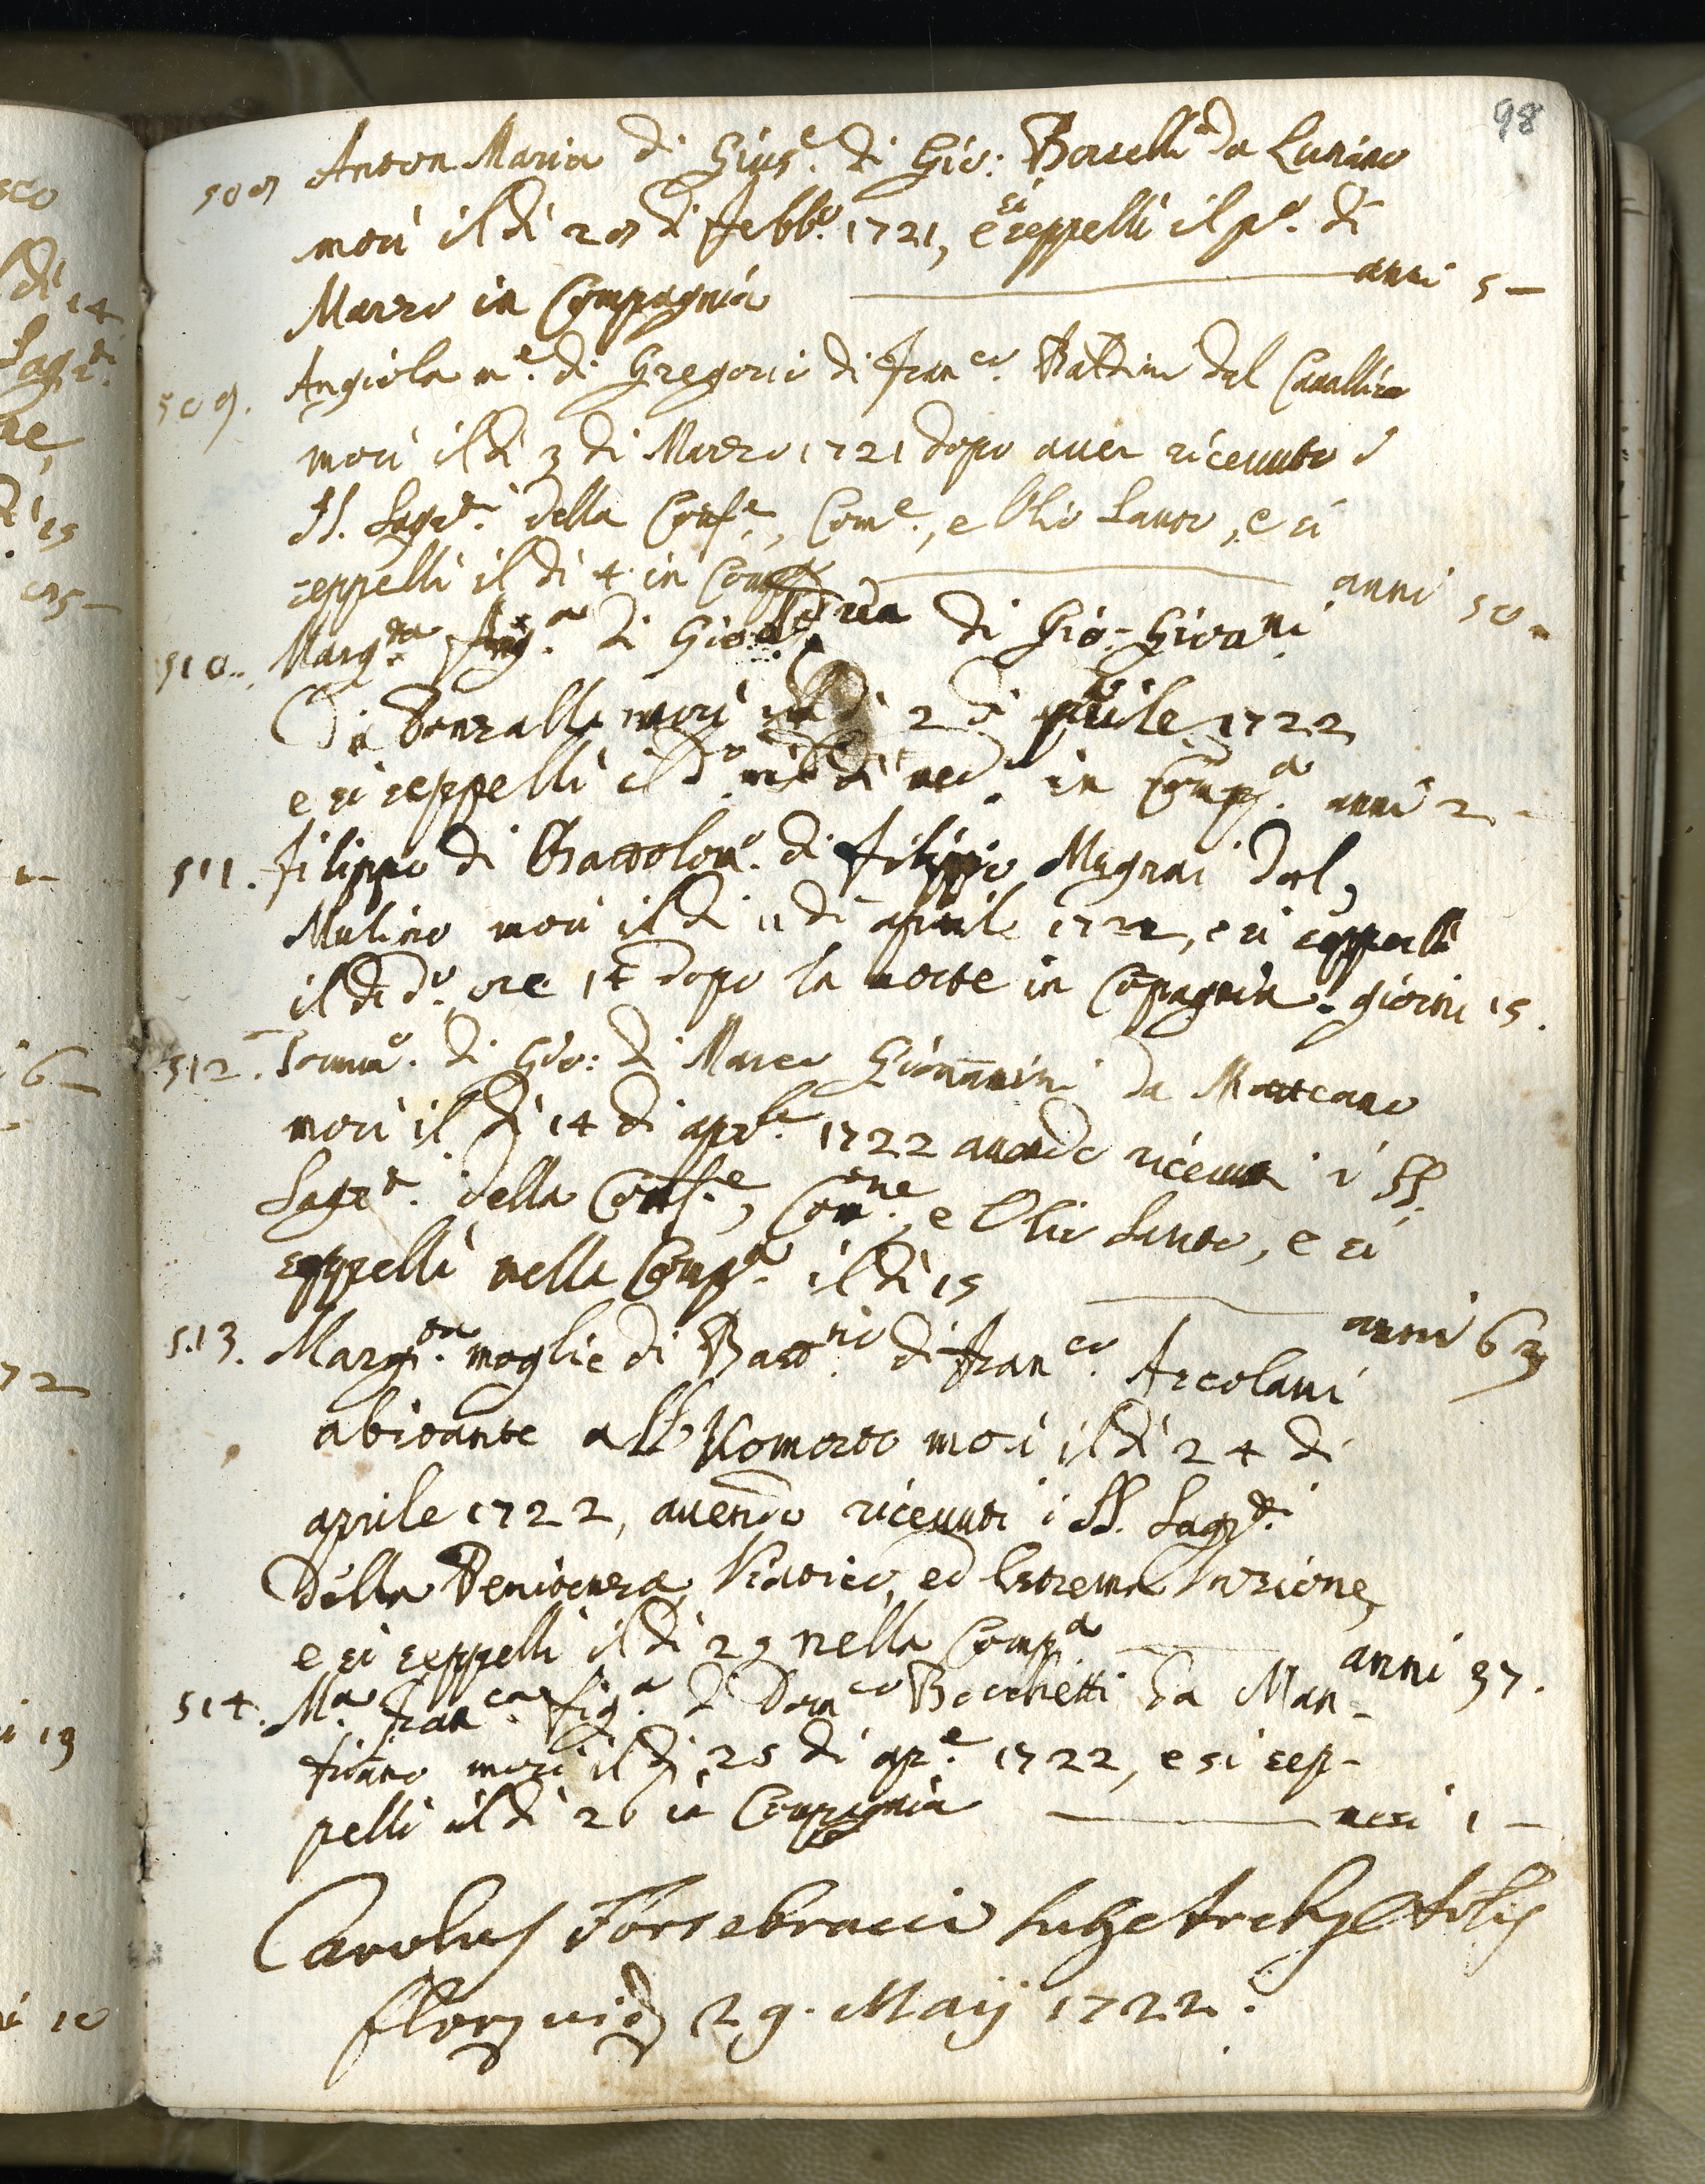 98
508 Anton Maria di Gius.e di Gio: Borcelli da Lutiano
morì il dì 28 di Febb.o 1721, e si seppellì il p.o di
Marzo in Compagnia anni 5 —
509. Angiola m.e di Gregorio di Fran.co Baldini dal Cavallico
morì il dì 3 di Marzo 1721 dopo aver ricevuto i
SS. Sagr.ti della Conf.e, Com.e, e Olio Santo, e si
seppellì il dì 4 in Comp.
anni 50
510. Marg.ta fig.a di Gio: di Gio: Giovani
Da Ronzalla morì il dì 2 di aprile 1722
e si seppellì il d.o dì med.o in Comp.a anni 2 -
511. Filippo di Bartolom.o di Filippo Magnai dal
Mulino morì il dì 11 di aprile 1722, e si seppellì
il dì d.o ore 1 dopo la notte in Copagnia. giorni 15.
512. Tomm.o di Gio: di Marco Giovannini da Mattcano
morì il dì 14 di apr.le 1722 avendo ricevuti i SS.
Sagr.ti della Conf.e, Com.ne, e Olio Santo, e si
seppellì nella Comp.a il dì 15
anni 63
513. Marg.ta moglie di Bast.no di Fran.co Arcolani
abitante all'Uomorto morì il dì 24 di
aprile 1722, avendo ricevuti i SS. Sagr.ti
della Penitenza, Viatico, ed Estrema Unzione,
e si seppellì il dì 29 nella Comp.a
anni 37.
514. M.a Fran.ca fig.a di Dom.co Bocchetti da Man-
ficano morì il dì 25 di ap.e 1722, e si sep-
pellì il dì 26 in Compagnia mesi 1 —
Carolus Fortebracci
29. Maij 1722.